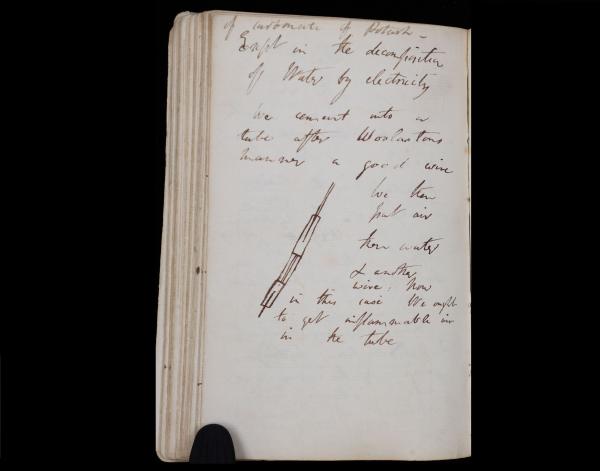 of carbonate of Potash –
Expt in the decomposition
of Water by electricity
We cement into a
tube after Woolastons
manner a good wire
We then
put air
then water
& another
wire, Now
in this case We ought
to get inflammable air
in the tube